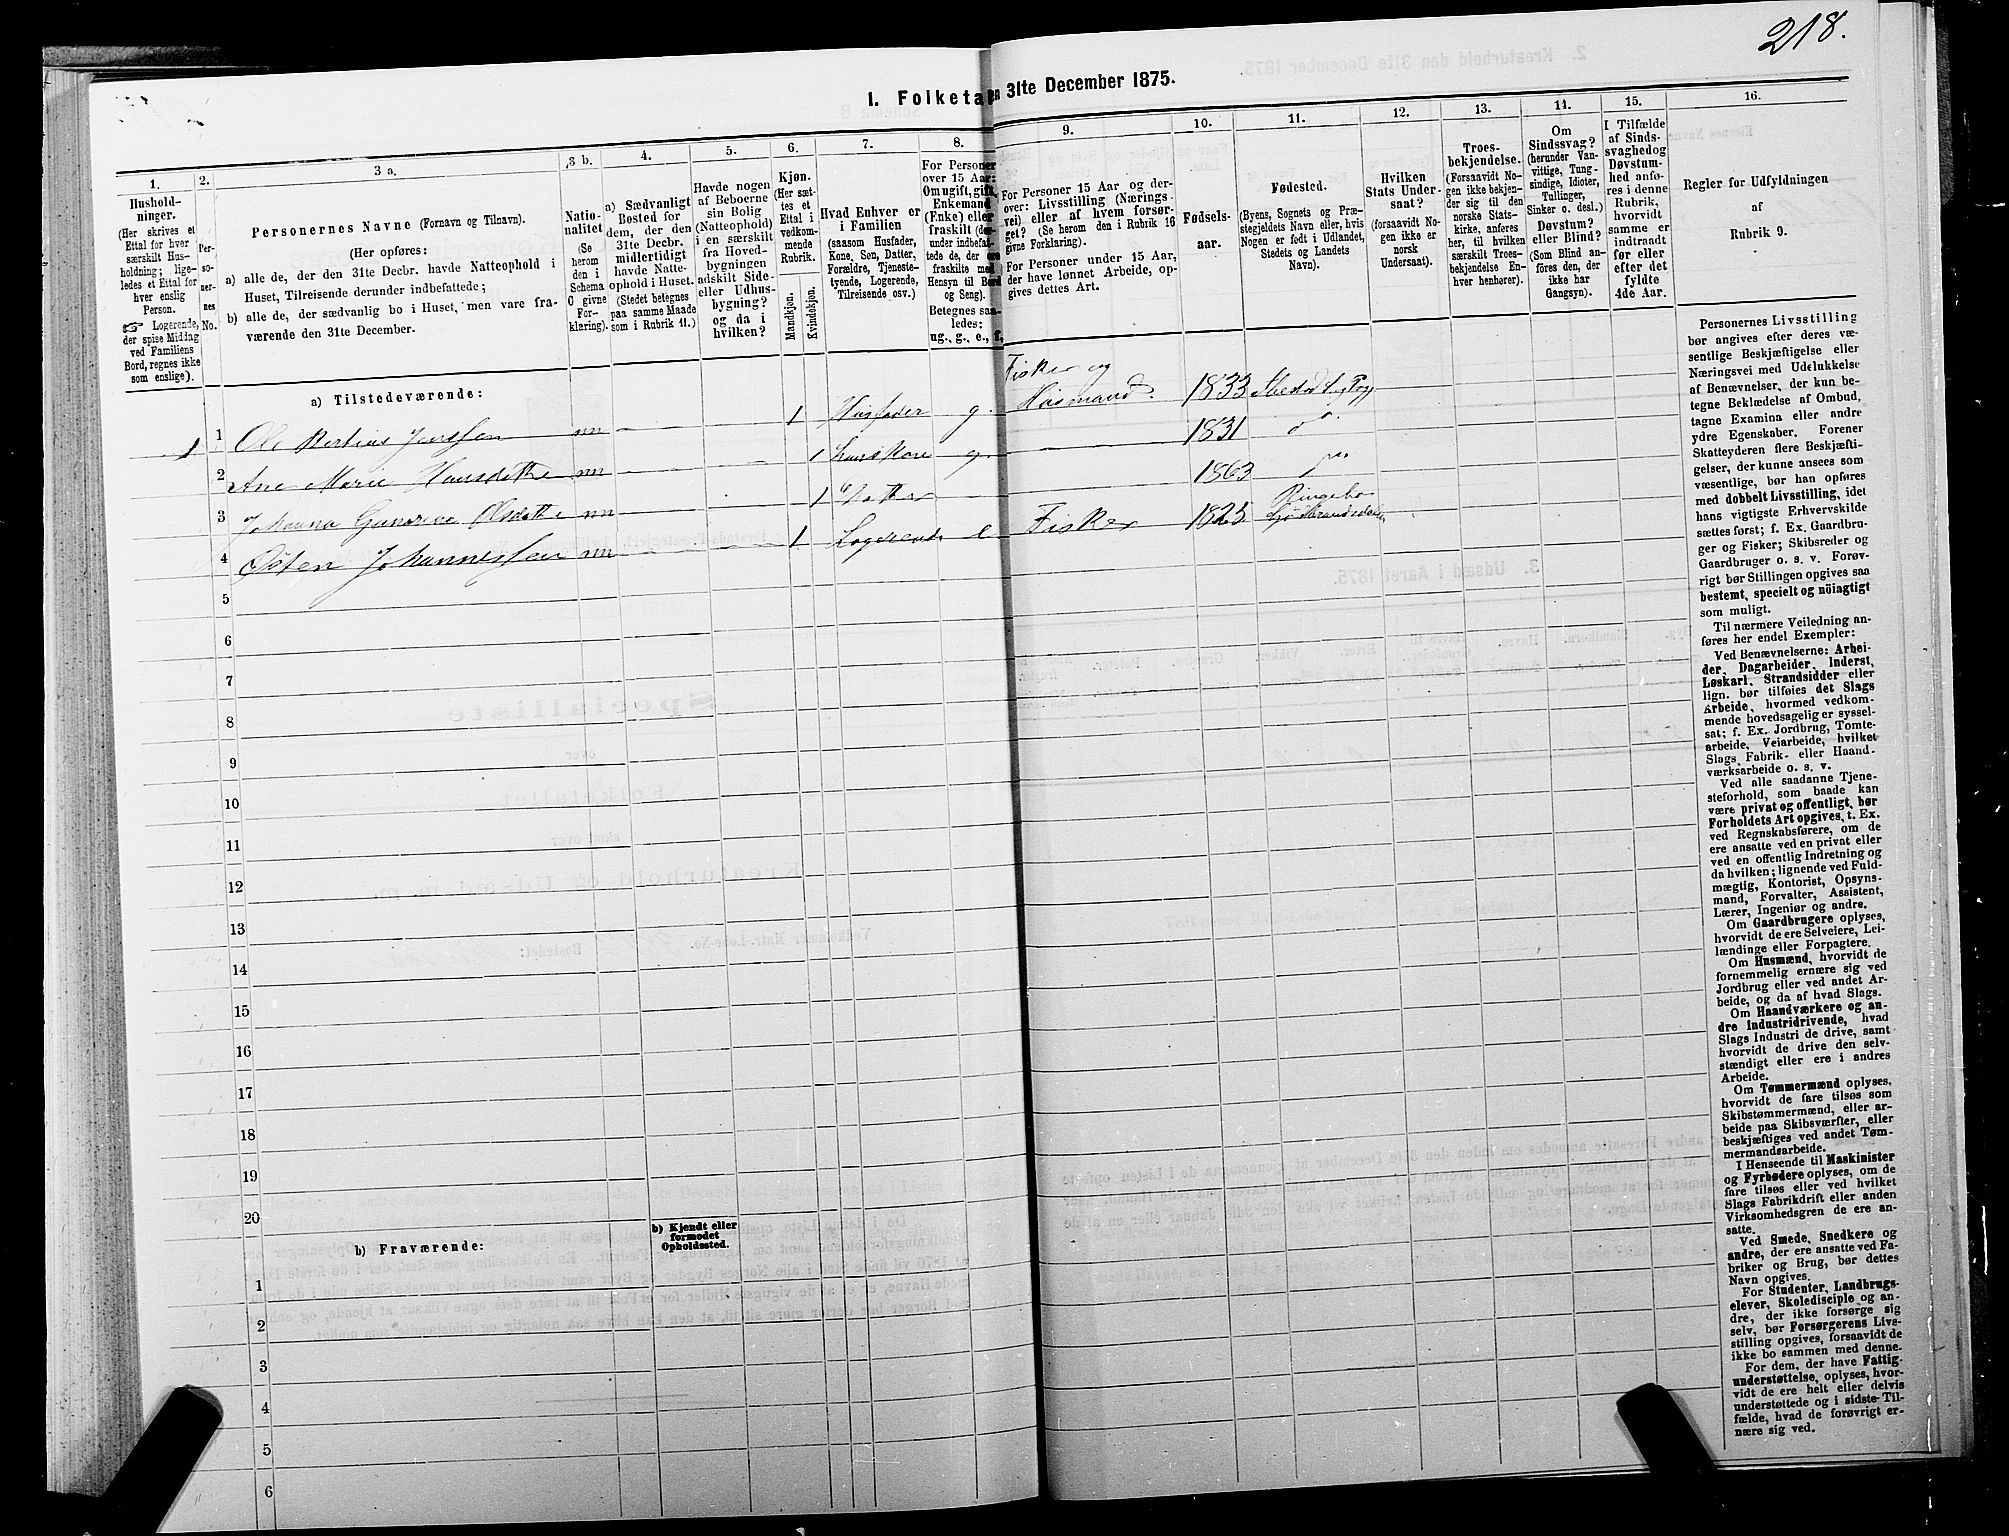 218.
I. Folketal den 31te December 1875.
1.
2.
3 a.
3 b.
4.
5.
6.
7.
8.
9.
10.
11.
12.
13.
14.
15.
16.
Hushold-
ninger.
(Her skrives et
Ettal for hver
særskilt Hus-
holdning; lige-
ledes et Ettal for
hver enslig
Person.
☞ Logerende,
der spise Middag
ved Familiens
Bord, regnes ikke
som enslige).
Per-
so-
ner-
nes
No.
Personernes Navne (Fornavn og Tilnavn).
(Her opføres:
a) alle de, der den 31te Decbr. havde Natteophold i
Huset, Tilreisende derunder indbefattede;
b) alle de, der sædvanlig bo i Huset, men vare fra-
værende den 31te December.
Natio-
nalitet
(Se
herom
den i
Schema
C givne
For-
klaring).
a) Sædvanligt
Bosted for
dem, der den
31te Decbr.
midlertidigt
havde Natte-
ophold i Huset.
(Stedet betegnes
paa samme Maade
som i Rubrik 11.)
Havde nogen
af Beboerne
sin Bolig
(Natteophold)
i en særskilt
fra Hoved-
bygningen
adskilt Side-
eller Udhus-
bygning?
og da i
hvilken?
Kjøn.
(Her sæt-
tes et
Ettal i
vedkom-
mende
Rubrik.
Mandkjøn.
Kvindekjøn.
Hvad Enhver er
i Familien
(saasom Husfader,
Kone, Søn, Datter,
Forældre, Tjeneste-
tyende, Logerende,
Tilreisende osv.)
For Personer
over 15 Aar:
Om ugift, gift,
Enkemand
(Enke) eller
fraskilt (der-
under indbefat-
tede de, der ere
fraskilte med
Hensyn til Bord
og Seng).
Betegnes saa-
ledes:
ug., g., e., f.
For Personer 15 Aar og der-
over: Livsstilling (Nærings-
vei) eller af hvem forsør-
get? (Se herom den i Rubrik 16
givne Forklaring).
For Personer under 15 Aar,
der have lønnet Arbeide, op-
gives dettes Art.
Fødsels-
aar.
Fødested.
(Byens, Sognets og Præ-
stegjeldets Navn eller, hvis
Nogen er født i Udlandet,
Stedets og Landets
Navn).
Hvilken
Stats Under-
saat?
(forsaavidt No-
gen ikke er
norsk
Undersaat).
Troes-
bekjendelse.
(Forsaavidt No-
gen ikke bekjen-
der sig til den
norske Stats-
kirke, anføres
her, til hvilken
særskilt Troes-
bekjendelse En-
hver henhører).
Om
Sindssvag?
(herunder Van-
vittige, Tung-
sindige, Idioter,
Tullinger,
Sinker o. desl.)
Døvstum?
eller Blind?
(Som Blind an-
føres den, der
ikke har
Gangsyn).
I Tilfælde
af Sinds-
svaghed og
Døvstum-
hed anfø-
res i denne
Rubrik,
hvorvidt
samme er
indtraadt
før eller
efter det
fyldte
4de Aar.
Regler for Udfyldningen
af
Rubrik 9.
a) Tilstedeværende:
1 1 Ole Jenssen nn 1 Husfader g. Fisker og Husmand. 1833
2 Ane Marie Hansdatter nn 1 hans Kone g. 1831
3 Johanna Olsdatter nn 1 Datter 1863
4 Østen Johannessen nn 1 Logerende e Fisker 1825 Ringebo Gudbrandsdalen
5
6
7
8
9
10
11
12
13
14
15
16
17
18
19
20
b) Fraværende:
b) Kjendt eller
formodet
Opholdssted.
1
2
3
4
5
6
Personernes Livsstilling
bør angives efter deres væ-
sentlige Beskjæftigelse eller
Næringsvei med Udelukkelse
af Benævnelser, der kun be-
tegne Beklædelse af Ombud,
tagne Examina eller andre
ydre Egenskaber. Forener
Skatteyderen flere Beskjæfti-
gelser, der kunne ansees som
væsentlige, bør han opføres
med dobbelt Livsstilling, idet
hans vigtigste Erhvervskilde
sættes først; f. Ex. Gaardbru-
ger og Fisker; Skibsreder og
Gaardbruger o. s. v. Forøv-
rigt bør Stillingen opgives saa
bestemt, specielt og nöiagtigt
som muligt.
Til nærmere Veiledning an-
føres her endel Exempler:
Ved Benævnelserne: Arbei-
der, Dagarbeider, Inderst,
Løskarl, Strandsidder eller
lign. bør tilføies det Slags
Arbeide, hvormed vedkom-
mende hovedsagelig er syssel-
sat; f. Ex. Jordbrug, Tomte-
arbeide, Veiarbeide, hvilket
Slags Fabrik- eller Haand-
værksarbeide o. s. v.
Ved alle saadanne Tjene-
steforhold, som baade kan
være privat og offentligt, bør
Forholdets Art opgives, t. Ex.
ved Regnskabsførere, om de
ere ansatte ved en privat eller
ved en offentlig Indretning og
da hvilken; lignende ved Fuld-
mægtig, Kontorist, Opsyns-
mand, Forvalter, Assistent,
Lærer, Ingeniør og andre.
Om Gaardbrugere oplyses,
hvorvidt de ere Selveiere, Lei-
lændinge eller Forpagtere.
Om Husmænd, hvorvidt de
fornemmelig ernære sig ved
Jordbrug eller ved andet Ar-
beide, og da af hvad Slags.
Om Haandværkere og an-
dre Industridrivende, hvad
Slags Industri de drive, samt
hvorvidt de drive den selv-
stændigt eller ere i andres
Arbeide.
Om Tømmermænd oplyses,
hvorvidt de fare tilsøs som
Skibstømmermænd, eller ar-
beide paa Skibsværfter, eller
beskjæftiges ved andet Tøm-
mermandsarbeide.
I Henseende til Maskinister
og Fyrbødere oplyses, om de
fare tilsøs eller ved hvilket
Slags Fabrikdrift eller anden
Virksomhedsgren de ere an-
satte.
Ved Smede, Snedkere og
andre, der ere ansatte ved Fa-
briker og Brug, bør dettes
Navn opgives.
For Studenter, Landbrugs-
elever, Skoledisciple og an-
dre, der ikke forsørge sig
selv, bør Forsørgerens Livs-
stilling opgives, forsaavidt de
ikke bo sammen med denne.
For dem, der have Fattig-
understøttelse, oplyses, hvor-
vidt de ere helt eller delvis
understøttede og i sidste Til-
fælde, hvad de forøvrigt er-
nære sig ved.